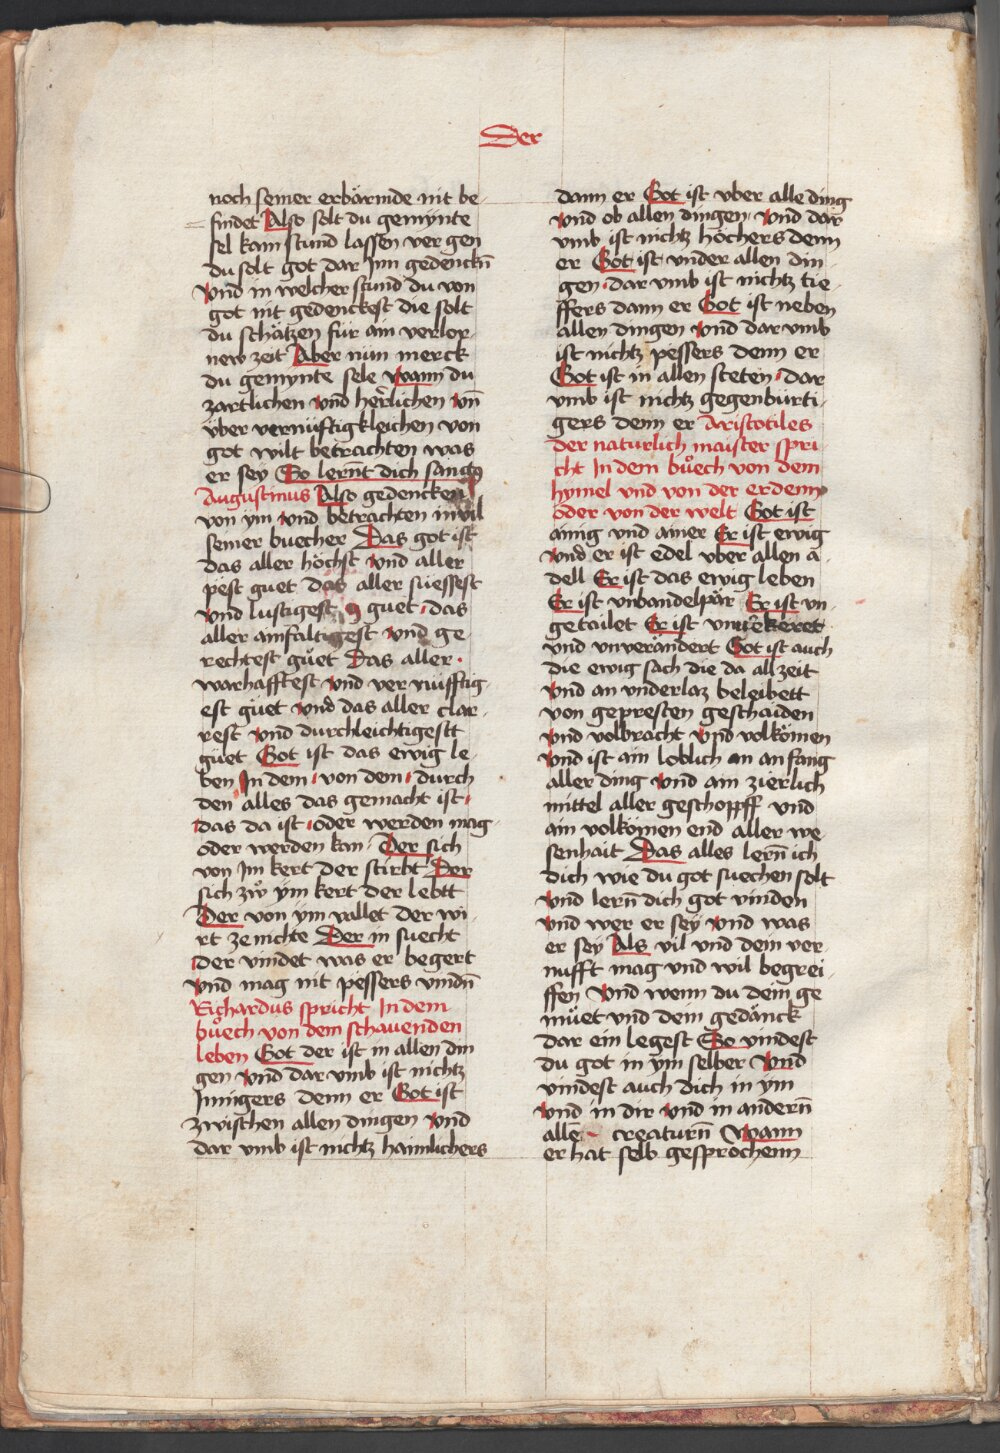 Der
noch seiner erbärmde nit be-
findet Also solt du gemynte
sel kain stund lassen vergen
du solt got dar Inn gedenckn̄
Vnd in welcher stund du von
got nit gedenckest die solt
du schätzen für ain verlor-
new zeit Aber nün merck
du gemynte sele wann du
zartlichen vnd herlichen vn̄
über vernüftigkleichen von
got wilt betrachten was
er sey So lernt dich sanctus
Augustinus Also gedencken
von ym vnd betrachten in vil
seiner buecher Das got ist
das aller höchst vnd aller
pest guet das aller suessest
vnd lustigest guet das
aller ainfaltigest vnd ge-
rechtest guet Das aller
warhafftest vnd vernüfftig-
est guet vnd das aller clar-
rest vnd durchleichtigestt
guet Got ist das ewig le-
ben In dem von dem durch
den alles das gemacht ist
das da ist oder werden mag
oder werden kan Der sich
von Im kert der stirbt Der
sich zw ym kert der lebtt
Der von ym vallet der wi-
rt ze nichte Der in suecht
der vindet was er begert
vnd mag nit pessers vindn̄
Richardus spricht In dem
buech von dem schauenden
leben Got der ist in allen din
gen vnd dar vmb ist nichtz
Innigers denn er Got ist
zwischen allen dingen vnd
dar vmb ist nichtz haimlichers
dann er Got ist vber alle ding
vnd ob allen dingen vnd dar
vmb ist nichtz höchers denn
er Got ist vnder allen din
gen dar vmb ist nichtz tie-
ffers dann er Got ist neben
allen dingen vnd dar vmb
ist nichtz pessers denn er
Got ist in allen steten dar
vmb ist nichtz gegenbürti-
gers denn er Aristotiles
der naturlich maister spri-
cht In dem buech von dem
hymel vnd von der erdenn
oder von der welt Got ist
ainig vnd ainer Er ist ewig
vnd er ist edel vber allen a-
dell Er ist das ewig leben
Er ist vnbandelpär Er ist vn-
getailet Er ist
vnd vnverandert Got ist auch
die ewig sach die da allzeit
vnd an vnderlaz beleibett
von gepresten geschaiden
vnd volbracht vnd volkömen
vnd ist ain loblich an anfang
aller ding vnd ain zierlich
mittel aller geschopff vnd
ain volkömen end aller we
senhait Das alles lern̄ ich
dich wie du got suechen solt
vnd lern̄ dich got vinden
vnd wer er sey vnd was
er sey Als vil vnd dein ver-
nufft mag vnd wil begrei-
ffen Vnd wenn du dein ge
müet vnd dein gedänck
dar ein legest So vindest
du got in ym selber vnd
vindest auch dich in ym
vnd in dir vnd in andern̄
allē creaturn̄ Wann
er hat selb gesprochenn